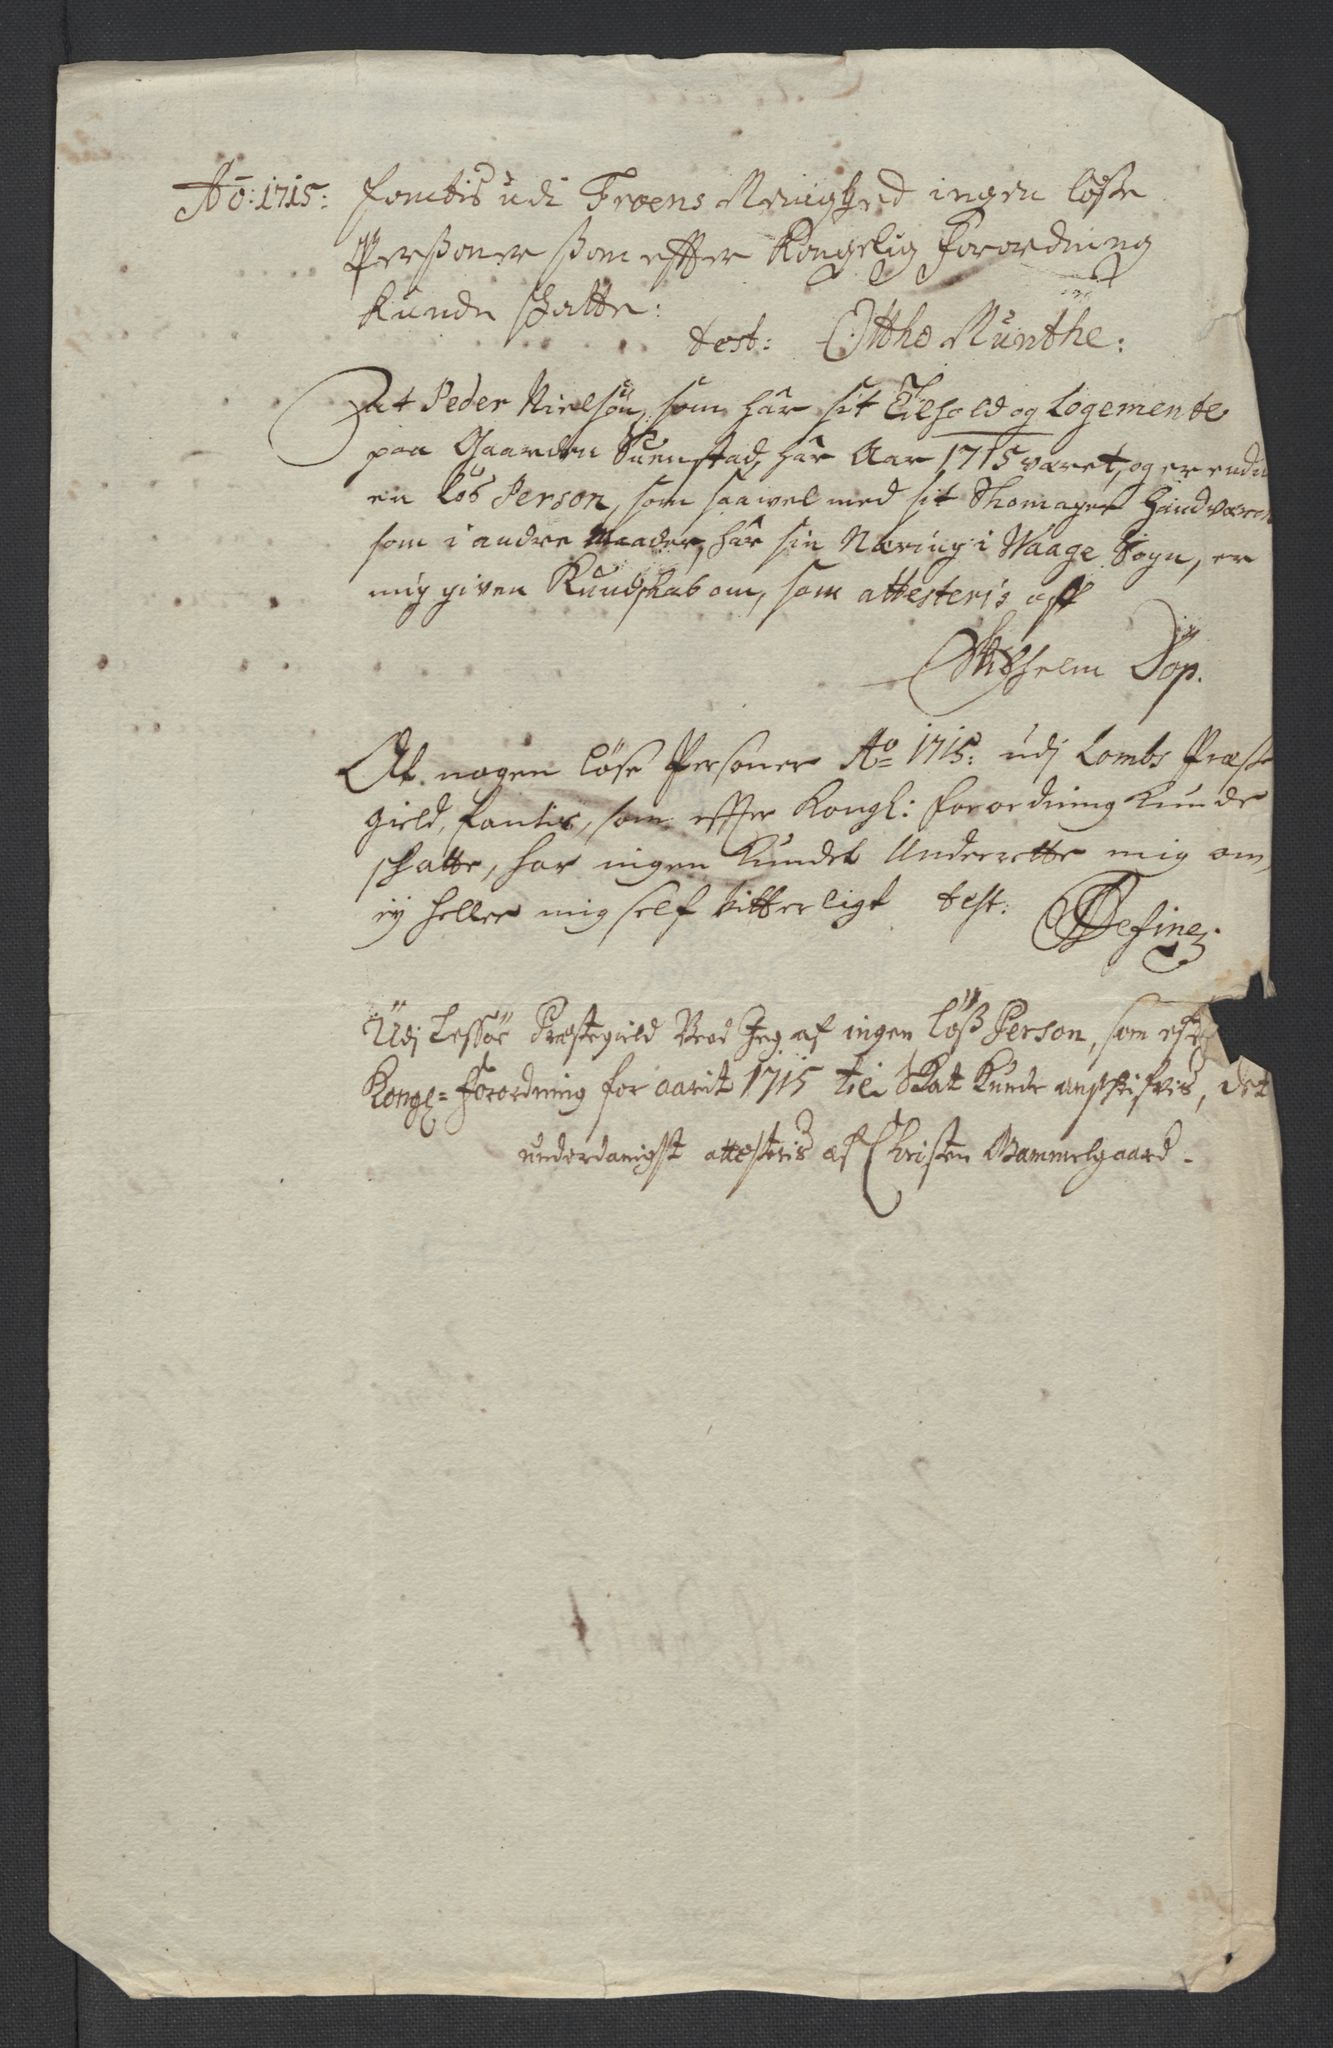 Ao: 1715: fantis udi Froens Menighed ingen løsse
Perßoner ßom effter Kongelig Forordning
kunde skatte:
test: Ottho Munthe:
At Peder Nielsøn, som hâr sit Tilhold og Logemente
paa Gaarden Suenstad, hâr Aar 1715 været, og er endnu
en løs Person, som saavel med sit Skomager Handværck
som i andre Maader, hâr sin Næring i Waage Sogn, er
mig given Kundskab om, som attesteris aff
Wilhelm Dop.
At nogen løse Personer Ao 1715: udj Lombs Præste
gield, fantis, som effter Kongl: forordning kunde
skatte, har ingen kundet Underrette mig om,
ij heller mig self vitterligt test:
Define
Udj Lessøe Præstegield Veed Jeg af ingen løß Person, som efter
Kongl= Forordning for aarit 1715 til Skat kunde anskrifvis, det
underdanigst attesteris af Christen Gammelgaard.